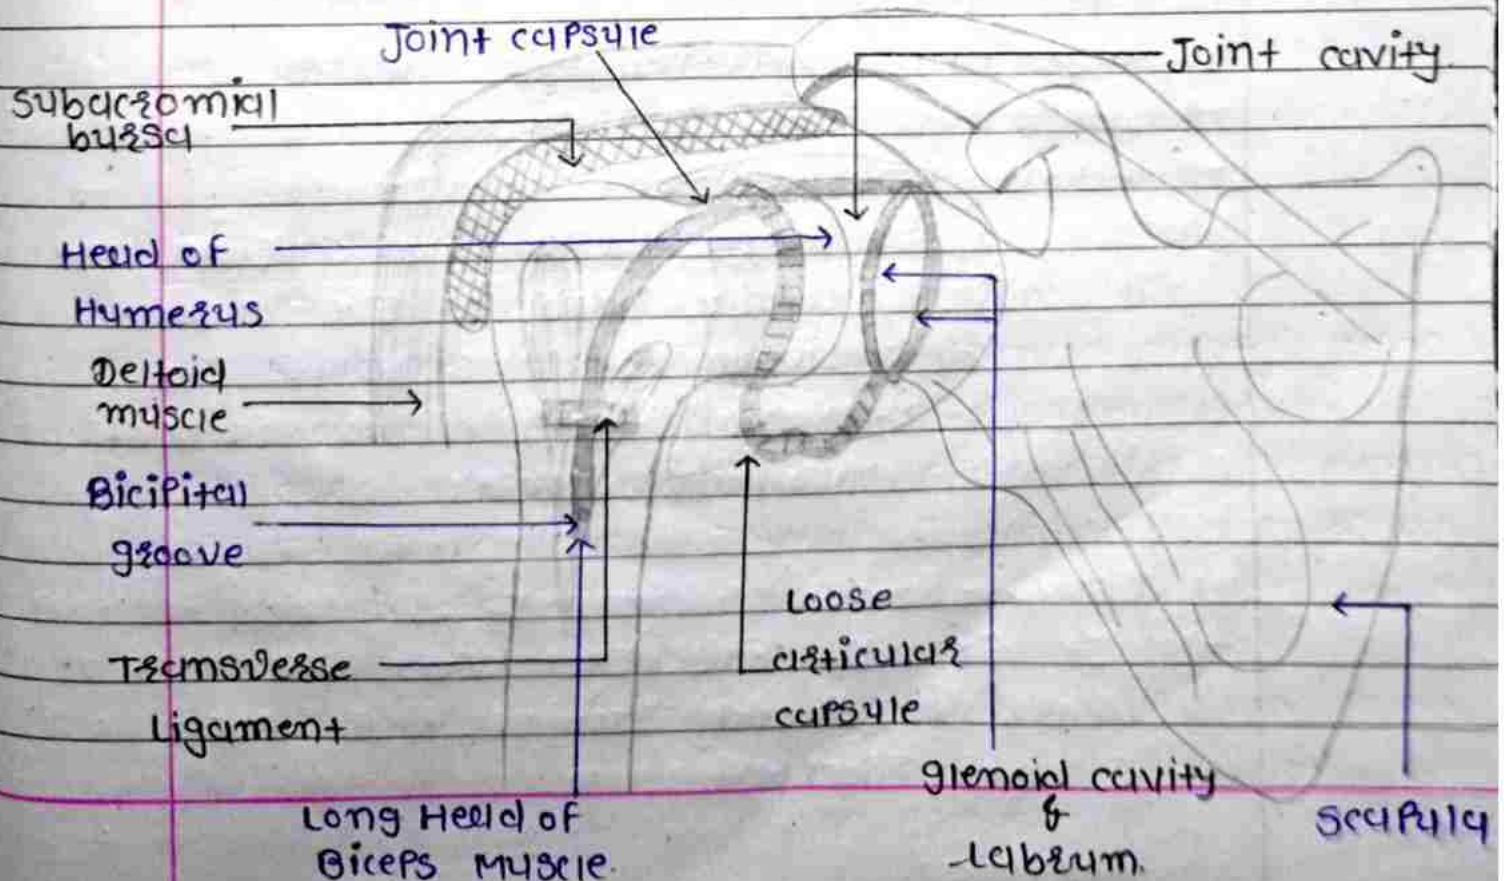 Joint capsule
Joint cavity
Subacromial
bursa
Head of
Humerus
Deltoid
muscle
Bicipital
groove
Transverse
Ligament
Loose
articular
capsule
Long Head of
Biceps Muscle.
glenoid cavity
&
Labrum.
Scapula